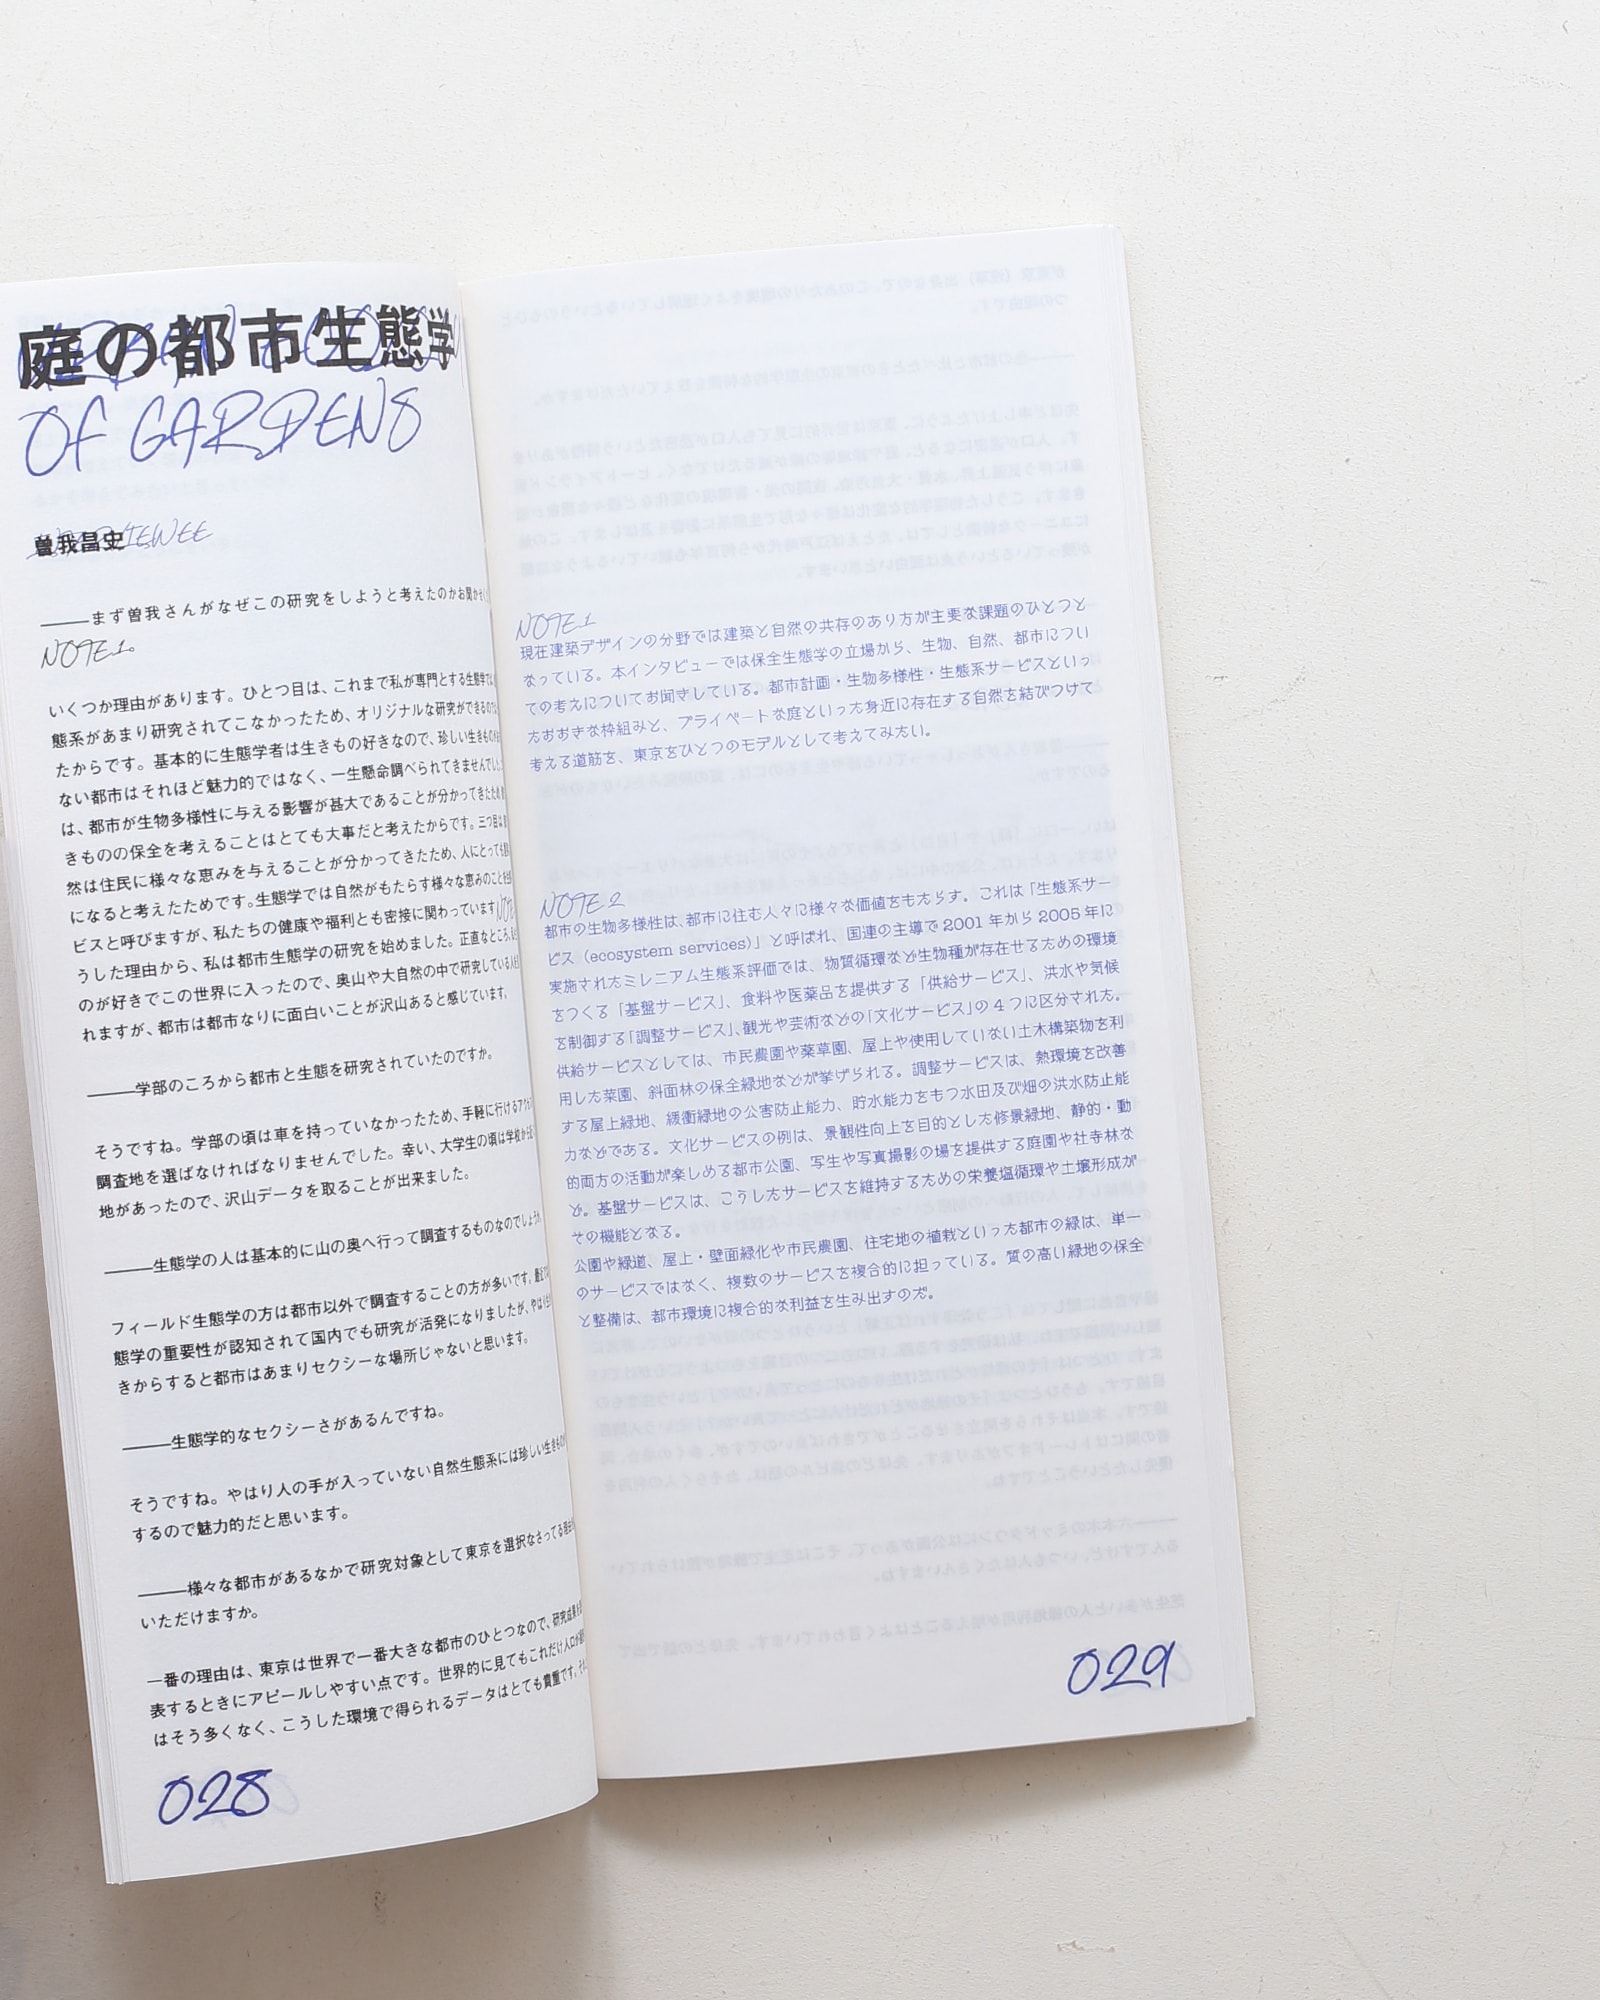 庭の都市生態学
OF GARDENS
曽我昌史
INTERVIEWEE
———まず曽我さんがなぜこの研究をしようと考えたのかお聞かせ
NOTE1。
いくつか理由があります。ひとつ目は、これまで私が専門とする生態学では
態系があまり研究されてこなかったため、オリジナルな研究ができるの
たからです。基本的に生態学者は生きもの好きなので、珍しい生きもの
ない都市はそれほど魅力的ではなく、一生懸命調べられてきませんでした
は、都市が生物多様性に与える影響が甚大であることが分かってきたため
きものの保全を考えることはとても大事だと考えたからです。三つ目は
然は住民に様々な恵みを与えることが分かってきたため、人にとっても
になると考えたためです。生態学では自然がもたらす様々な恵みのことを
ビスと呼びますが、私たちの健康や福利とも密接に関わっています
うした理由から、私は都市生態学の研究を始めました。正直なところ、
のが好きでこの世界に入ったので、奥山や大自然の中で研究している人を
れますが、都市は都市なりに面白いことが沢山あると感じています。
———学部のころから都市と生態を研究されていたのですか。
そうですね。学部の頃は車を持っていなかったため、手軽に行ける
調査地を選ばなければなりませんでした。幸い、大学生の頃は学校から
地があったので、沢山データを取ることが出来ました。
———生態学の人は基本的に山の奥へ行って調査するものなのでしょうか
フィールド生態学の方は都市以外で調査することの方が多いです。最近
態学の重要性が認知されて国内でも研究が活発になりましたが、やはり
きからすると都市はあまりセクシーな場所じゃないと思います。
———生態学的なセクシーさがあるんですね。
そうですね。やはり人の手が入っていない自然生態系には珍しい生きもの
するので魅力的だと思います。
———様々な都市があるなかで研究対象として東京を選択なさってる理由
いただけますか。
一番の理由は、東京は世界で一番大きな都市のひとつなので、研究成果を
表するときにアピールしやすい点です。世界的に見てもこれだけ人口が
はそう多くなく、こうした環境で得られるデータはとても貴重です。
028
NOTE1
現在建築デザインの分野では建築と自然の共存のあり方が主要な課題のひとつと
なっている。本インタビューでは保全生態学の立場から、生物、自然、都市につい
ての考えについてお聞きしている。都市計画・生物多様性・生態系サービスといっ
たおおきな枠組みと、プライベートな庭といった身近に存在する自然を結びつけて
考える道筋を、東京をひとつのモデルとして考えてみたい。
NOTE2
都市の生物多様性は、都市に住む人々に様々な価値をもたらす。これは「生態系サー
ビス（ecosystem services）」と呼ばれ、国連の主導で 2001 年から 2005 年に
実施されたミレニアム生態系評価では、物質循環など生物種が存在せるための環境
をつくる「基盤サービス」、食料や医薬品を提供する「供給サービス」、洪水や気候
を制御する「調整サービス」、観光や芸術などの「文化サービス」の 4 つに区分された。
供給サービスとしては、市民農園や薬草園、屋上や使用していない土木構築物を利
用した菜園、斜面林の保全緑地などが挙げられる。調整サービスは、熱環境を改善
する屋上緑地、緩衝緑地の公害防止能力、貯水能力をもつ水田及び畑の洪水防止能
力などである。文化サービスの例は、景観性向上を目的とした修景緑地、静的・動
的両方の活動が楽しめる都市公園、写生や写真撮影の場を提供する庭園や社寺林な
ど。基盤サービスは、こうしたサービスを維持するための栄養塩循環や土壌形成が
その機能となる。
公園や緑道、屋上・壁面緑化や市民農園、住宅地の植栽といった都市の緑は、単一
のサービスではなく、複数のサービスを複合的に担っている。質の高い緑地の保全
と整備は、都市環境に複合的な利益を生み出すのだ。
029